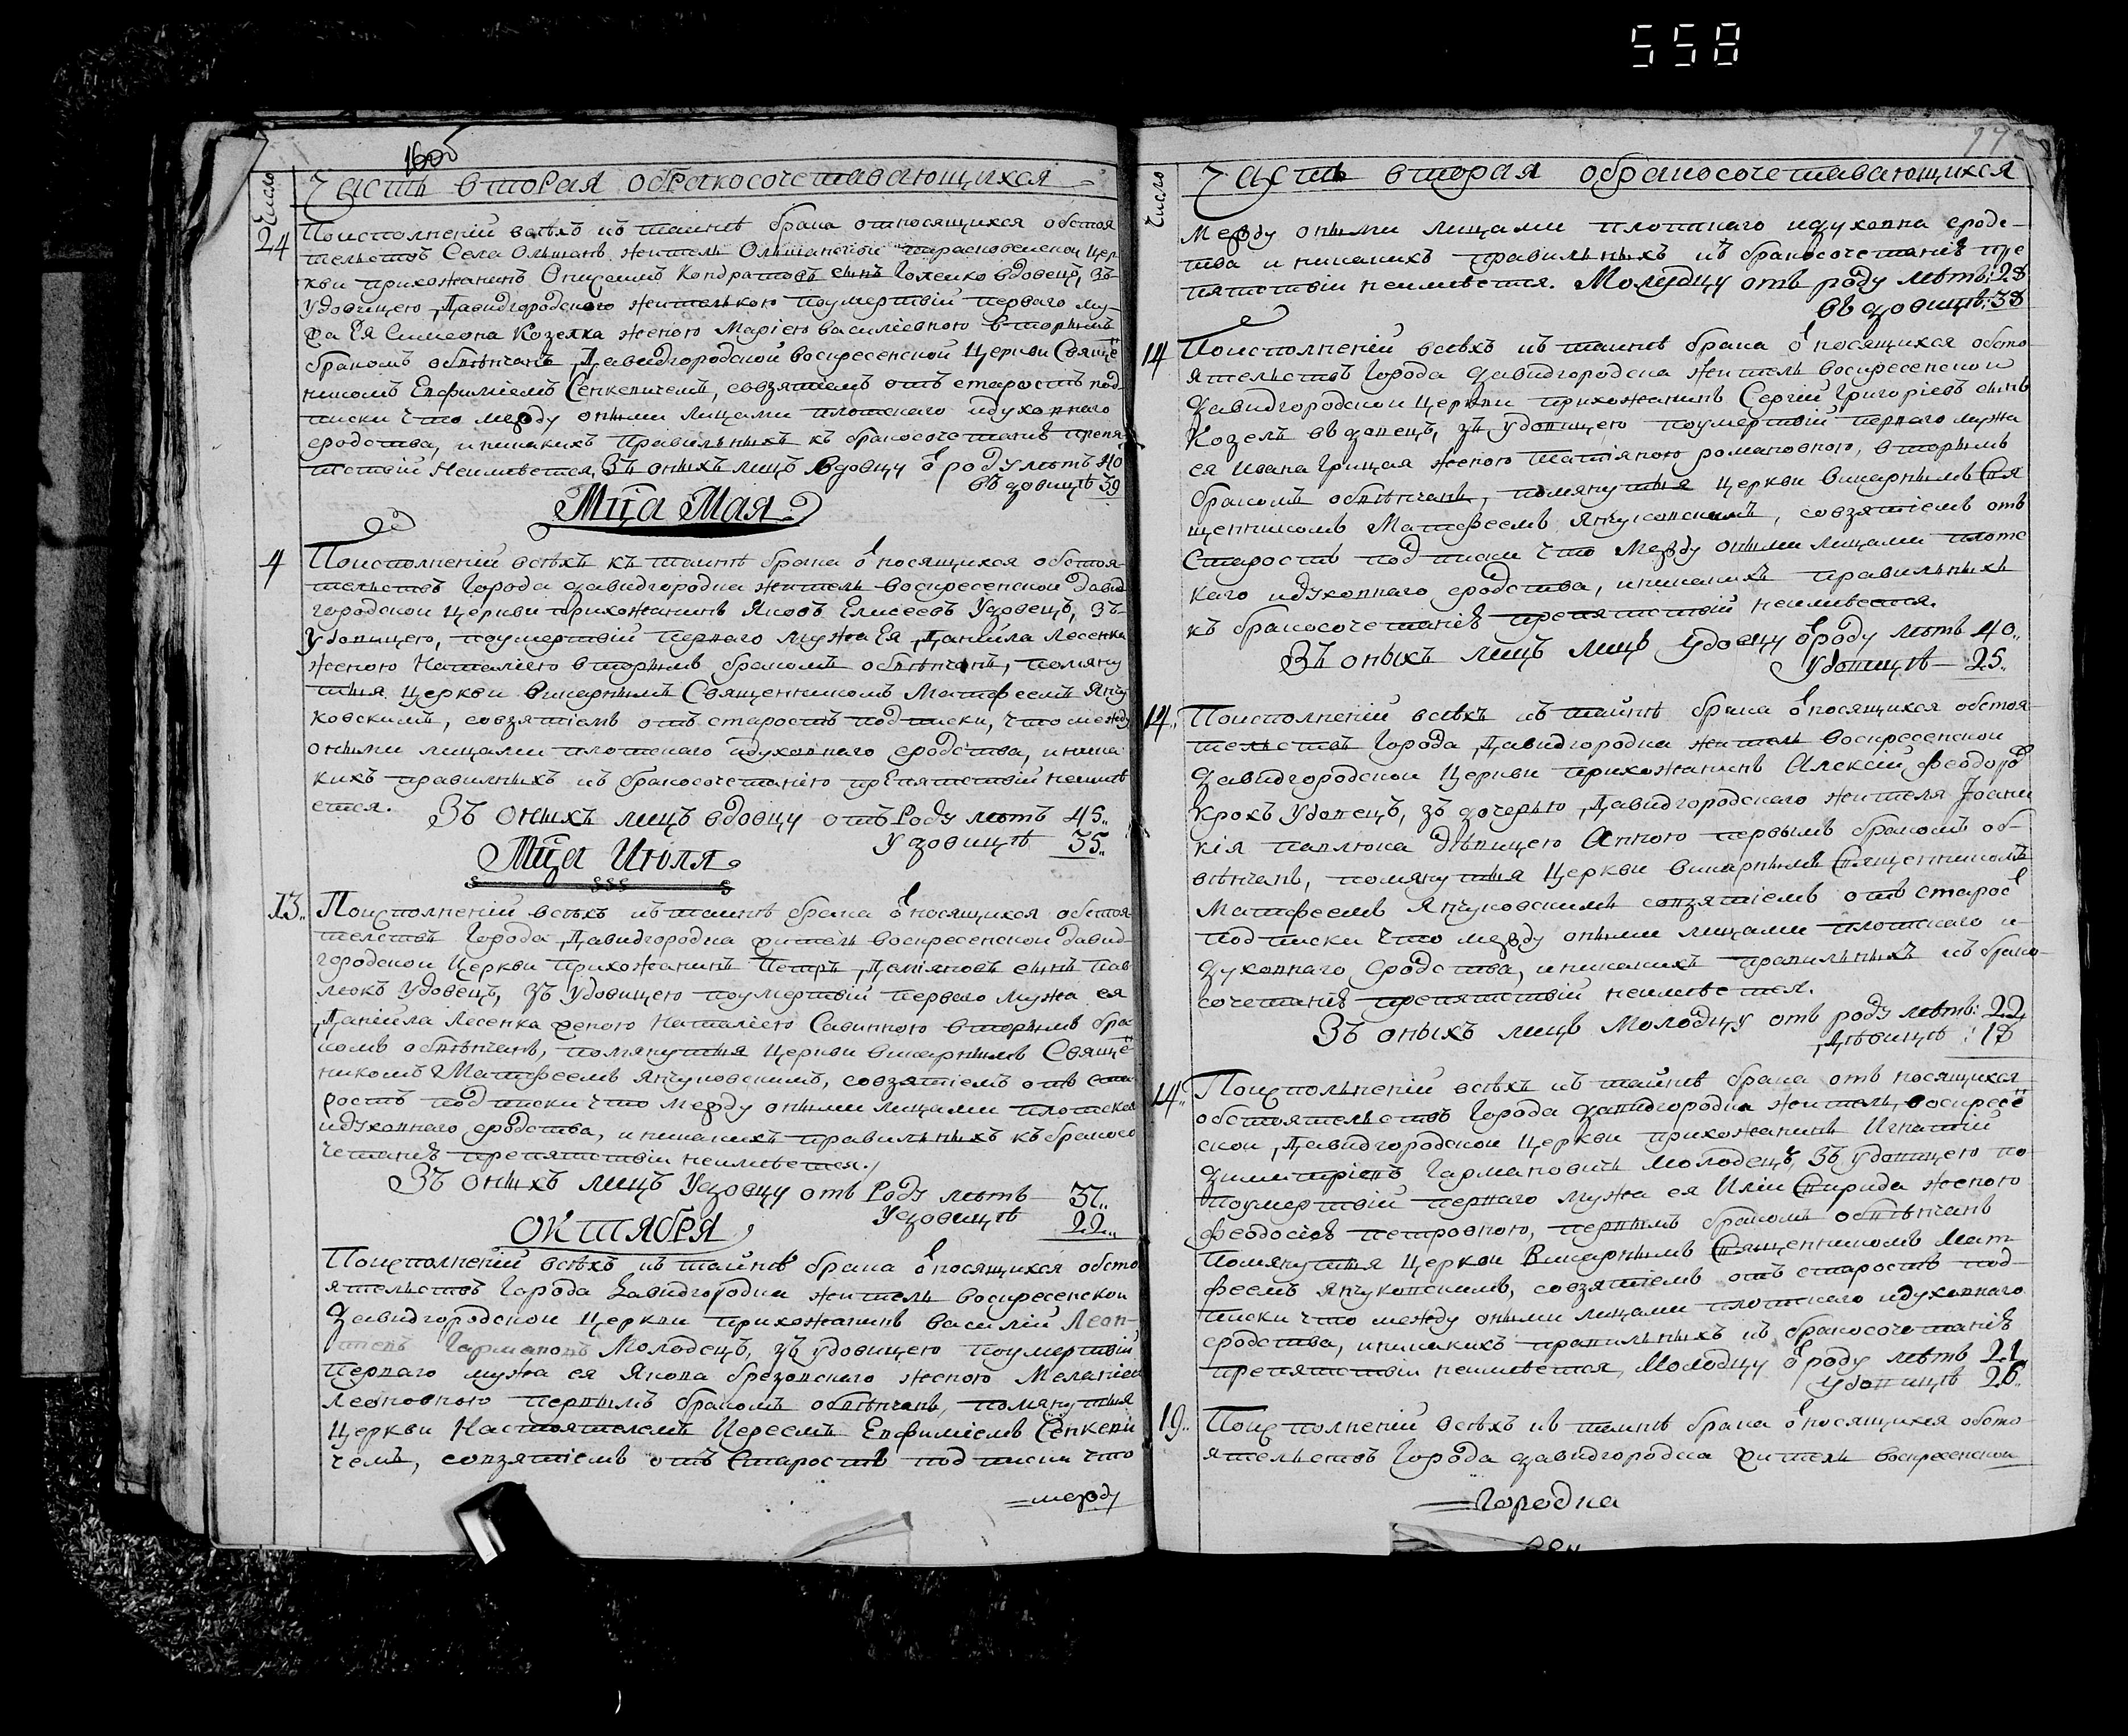 558
160б
Часть вторая обракосочетавающихся
Число
24
Поисполненіи всѣхъ къ таинѣ брака относящихся обстоя
тельствъ Села Ольшанъ житель Ольшанской Параскевиской Цер
кви прихожанинъ Онисимъ Кондратовъ сынъ вдовецъ, зъ
удовицею Давидгородскою жителькою поумершій перваго му
жа Ея Симеона Козелка женою Маріею Василіевною вторымъ
бракомъ обвѣнчанъ Давидгородской Воскресенской Церкви Свяще
никомъ Евфиміемъ Сенкевичемъ, совзятіемъ отъ старостъ под
писки что между оными лицами плотскаго идуховнаго
сродства, иникакихъ правильныхъ къ бракосочетаніѣ препя
тствій неимѣется, Зъ оныхъ лицъ вдовцу о роду лѣтъ 40
въдовицѣ 39
Мца Мая
4
Поисполненіи всѣхъ къ таинѣ брака о носящихся обстоя
тельствъ Города Давидгородка житель Воскресенской Давид
городской Церкви прихожанинъ Яковъ Елисеевъ Удовецъ, зъ
Удовицею, поумершій перваго мужа Ея Даніила Лесенка
женою Наталіею вторымъ бракомъ обвѣнчанъ, помяну
тыя Церкви викарнымъ Священникомъ Матфеемъ Янчу
ковскимъ, совзятіемъ отъ старостъ подписки, что между
оными лицами плотскаго идуховнаго сродства, иника
кихъ правильныхъ къ бракосочетанію препятствій неимѣ
ется. Зъ оныхъ лицъ вдовцу отъ Роду лѣтъ 45..
Удовицѣ 35..
Мца Июля
13..
Поисполненіи всѣхъ къ таинѣ брака о носящихся обстоя
телствъ Города Давидгородка житель Воскресенской Давид
городской Церкви прихожанинъ Петръ Даміяновъ сынъ Пав
люкъ Удовецъ, зъ Удовицею поумершій перваго мужа ея
Даніила Лесенка женою Наталіею Савинною вторымъ бра
комъ обвѣнчанъ, помянутыя Церкви викарнымъ Свяще
никомъ Матфеемъ Янчуковскимъ, совзятіемъ отъ ста
ростъ подписки что между оными лицами плотска
идуховнаго сродства, иникакихъ правильныхъ къ бракосо
четаніѣ препятствіи неимѣется.
Зъ оныхъ лицъ Удовцу отъ Роду лѣтъ 37..
Удовицѣ 22..
Октября
Поисполненіи всѣхъ къ таинѣ брака о носящихся обсто
ятельствъ Города Давидгородка житель Воскресенской
Давидгородской Церкви прихожанинъ Василій Леон-
Молодецъ, зъ удовицею поумершій
перваго мужа ея Якова женою Меланіею
Леоновною первымъ бракомъ обвѣнчанъ, помянутыя
Церкви Настоятелемъ Иереемъ Евфиміемъ Сенкеви
чемъ, совзятіемъ отъ Старостъ подписки что
между
Часть вторая обракосочетавающихся
Число
между оными лицами плотнаго идуховна сродс-
тва иникакихъ правильныхъ къ бракосочетаніѣ пре
пятствіи неимѣется. Молодцу отъ роду лѣтъ: 28
въдовицѣ: 38
14
Поисполненіи всѣхъ къ таинѣ брака о носящихся обсто
ятельствъ Города Давидгородка житель Воскресенской
Давидгородской Церкви прихожанинъ Сергій Григоріевъ сынъ
Козелъ въдовецъ, зъ удовицею поумершій перваго мужа
ея Ивана Грицая женою Татіяною Романовною, вторымъ
бракомъ обвѣнчанъ, помянутыя Церкви викарнымъ Свя
щенникомъ Матфеемъ Янчуковскимъ, совзятіемъ отъ
Старостъ подписки что Между оными лицами плотс
каго идуховнаго сродства, иникакихъ правильныхъ
къ бракосочетаніѣ препятствій неимѣется.
Зъ оныхъ лицъ лицъ удовцу о роду лѣтъ 40..
Удовицѣ — 25..
14..
Поисполненіи всѣхъ къ таинѣ брака о носящихся обстоя
тельствъ Города Давидгородка житель Воскресенской
Давидгородской Церкви прихожанинъ Алексій Феодоро
Крокъ Удовецъ, зъ дочерью Давидгородскаго жителя Іоани
кія Павлюка дѣвицею Анною первымъ бракомъ об-
вѣнчанъ, помянутыя Церкви викарнымъ Священникомъ
Матфеемъ Янчуковскимъ совзятіемъ отъ старос
подписки что между оными лицами плотскаго и
духовнаго сродства, иникакихъ правильныхъ къ брако-
сочетаніѣ препятствій неимѣется.
Зъ оныхъ лицъ Молодцу отъ роду лѣтъ: 22
Дѣвицѣ: 18
14..
Поисполненіи всѣхъ къ таинѣ брака отъ носящихся
обстоятельствъ Города Давидгородка житель, Воскресе
ской Давидгородской Церкви прихожанинъ Игнатій
Димитріевъ Гармановичъ Молодецъ, Зъ удовицею по
поумершій перваго мужа ея Иліи Спирида женою
Феодосіѣ Петровною, первымъ бракомъ обвѣнчанъ
Помянутыя Церкви Викарнымъ Священникомъ Мат
феемъ Янчуковскимъ, совзятіемъ отъ старостъ под-
писки что между оными лицами плотскаго идуховнаго
сродства, иникакихъ правильныхъ къ бракосочетаніѣ
препятствіи неимѣется, Молодцу о роду лѣтъ 21
Удовицѣ 26..
19..
Поисполненіи всѣхъ къ таинѣ брака о носящихся обсто
ятельствъ Города Давидгородка житель Воскресенской
Городка